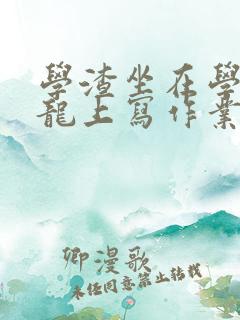 學渣坐在學
龍上寫作業
卿漫歌
未经同意禁止转载